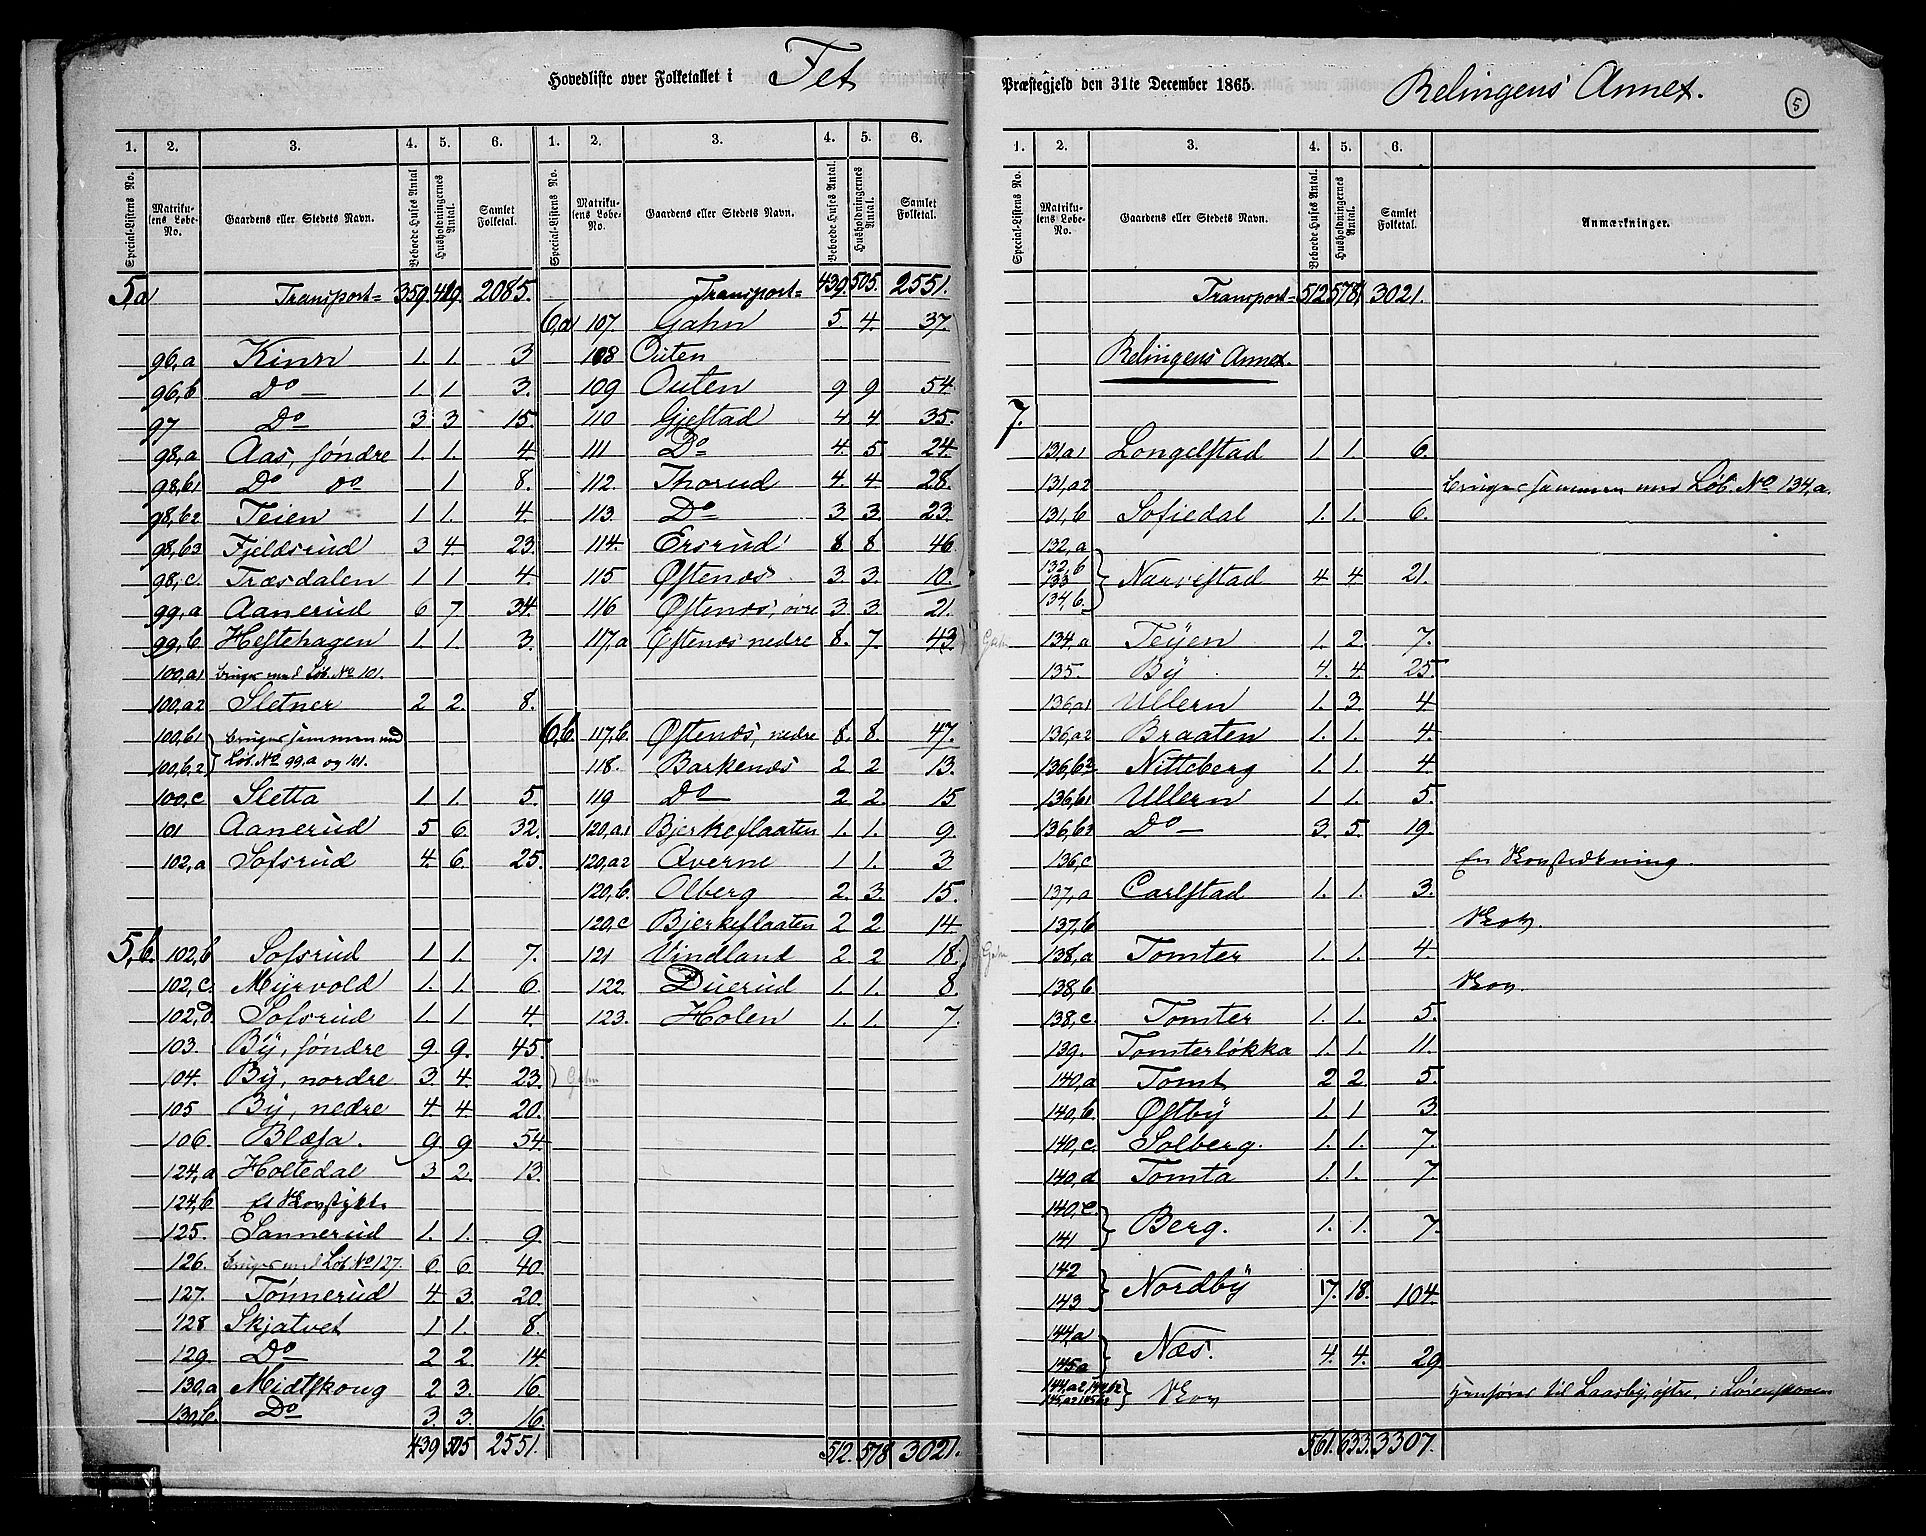 Hovedliste over Folketallet i Fet Præstegjeld den 31te December 1865. Relingens Annex. 5
1. 2. 3. 4. 5. 6.
Special-Listens No. Matrikulens Løbe-No. Gaardens eller Stedets Navn. Beboede Huses Antal Husholdningernes Antal. Samlet Folketal.
5a Transport= 359. 419. 2085.
96,a Kinn 1. 1. 3
96,b Do 1 1 3.
97 Do 3 3 15.
98,a Aas, søndre 1. 1. 4.
98,b1 Do do 1 8.
98,b2 Teien 1 1. 4.
98,b3 Fjeldsrud 3 4. 23.
98,c. Træsdalen 1 1 4.
99,a Aanerud 6 7 34.
99,b Hestehagen 1. 1. 3.
100,a1 bruges med Løb. No 101.
100,a2 Sletner 2 2. 8.
100,b1 bruges sammen med
100,b,2 Løb. No 99,a og 101.
100,c Sletta 1 1. 5.
101 Aanerud 5 6. 32.
102,a Sofsrud 4. 6. 25.
5,b. 102,b Sofsrud 1. 1. 7.
102,c. Myrvold 1. 1. 6.
102,d. Sofsrud 1. 1. 4.
103. By, søndre 9. 9. 45.
104. By, nordre 3. 4. 23.
105 By, nedre 4 4. 20.
106. Blæsa. 9. 9 54.
124,a Holtedal 3 2. 13.
124,b Et Skovstykke.
125. Sannerud 1. 1. 9.
126. bruges med Løb. No 127. 6. 6. 40.
127. Tønnerud 4 3. 20.
128 Skjatvet 1 1. 8.
129. Do 2 2. 14.
130,a Midtskoug 2 3. 16.
130,b Do 3. 3. 16.
439 505 2551.
1. 2. 3. 4. 5. 6.
Special-Listens No. Matrikulens Løbe-No. Gaardens eller Stedets Navn. Beboede Huses Antal. Husholdningernes Antal. Samlet Folketal.
Transport= 439. 505. 2551.
6,a 107. Gahn 5. 4. 37.
108 Outen
109 Outen 9 9. 54.
110 Gjestad 4. 4 35.
111 Do 4. 5 24.
112. Thorud 4. 4 28.
113. Do 3 3. 23.
114. Ersrud 8 8 46
115 Østenæs 3. 3. 10.
116 Østenæs, øvre 3 3. 21.
117,a Østenæs nedre 8. 7. 43. Gahn
6,b. 117,b. Østenæs, nedre 8. 8. 47.
118. Barkenæs 2 2 13.
119 Do 2 2. 15
120,a1 Bjerkeflaaten 1. 1. 9.
120,a2 Averne 1 1. 3
120,b. Olberg 2. 3. 15.
120,c Bjerkeflaaten 2 2. 14.
121 Vindland 2 2 18. Gahn
122. Duerud 1. 1. 8.
123. Holen 1. 1. 7.
Gahn
512. 578 3021.
1. 2. 3. 4. 5. 6.
Special-Listens No. Matrikulens Løbe-No. Gaardens eller Stedets Navn. Beboede Huses Antal. Husholdningernes Antal. Samlet Folketal. Anmærkninger.
Transport= 512 578 3021.
Relingens Annex.
7.
131,a1 Longelstad 1. 1. 6.
131,a2 bruges sammen med Løb. No 134,a.
131,b Sofiedal 1. 1. 6.
132,a
132,b
133 Narvestad 4 4 21
134,b.
134,a Teyen 1. 2. 7.
135. By 4. 4. 25.
136,a1 Ullern 1. 3. 4
136,a2 Braaten 1. 1. 4.
136,b2 Nitteberg 1. 1. 4.
136,b1 Ullern 1 1. 5.
136,b3 Do 3. 5. 19.
136,c En Skovstrækning.
137,a Carlstad 1. 1. 3.
137,b Skov.
138,a Tomter 1. 1. 4.
138,b. Skov.
138,c. Tomter 1. 1. 5.
139. Tomterløkka 1. 1. 11.
140,a Tomt 2 2. 5.
140,b. Østby 1 1 3.
140,c. Solberg. 1. 1. 7.
140,d Tomta 1. 1. 7.
140,e.
141 Berg. 1. 1. 7.
142
143 Nordby 17. 18. 104.
144,a
145a Næs. 4. 4. 29
144,a2, 144b2 Skov henføres til Laasby, østre, i Lørenskoven
561. 633. 3307.